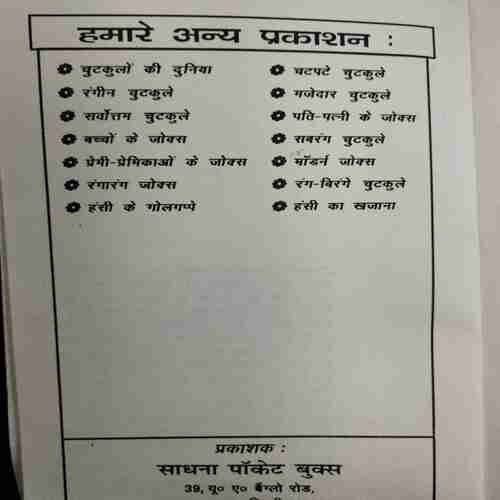 हमारे अन्य प्रकाशन :
❁ चुटकुलों की दुनिया ❁ चटपटे चुटकुले
❁ रंगीन चुटकुले ❁ मजेदार चुटकुले
❁ सर्वोत्तम चुटकुले ❁ पति-पत्नी के जोक्स
❁ बच्चों के जोक्स ❁ सबरंग चुटकुले
❁ प्रेमी-प्रेमिकाओं के जोक्स ❁ मॉडर्न जोक्स
❁ रंगारंग जोक्स ❁ रंग-बिरंगे चुटकुले
❁ हंसी के गोलगप्पे ❁ हंसी का खजाना
प्रकाशक :
साधना पॉकेट बुक्स
39, यू० ए० बैंग्लो रोड,